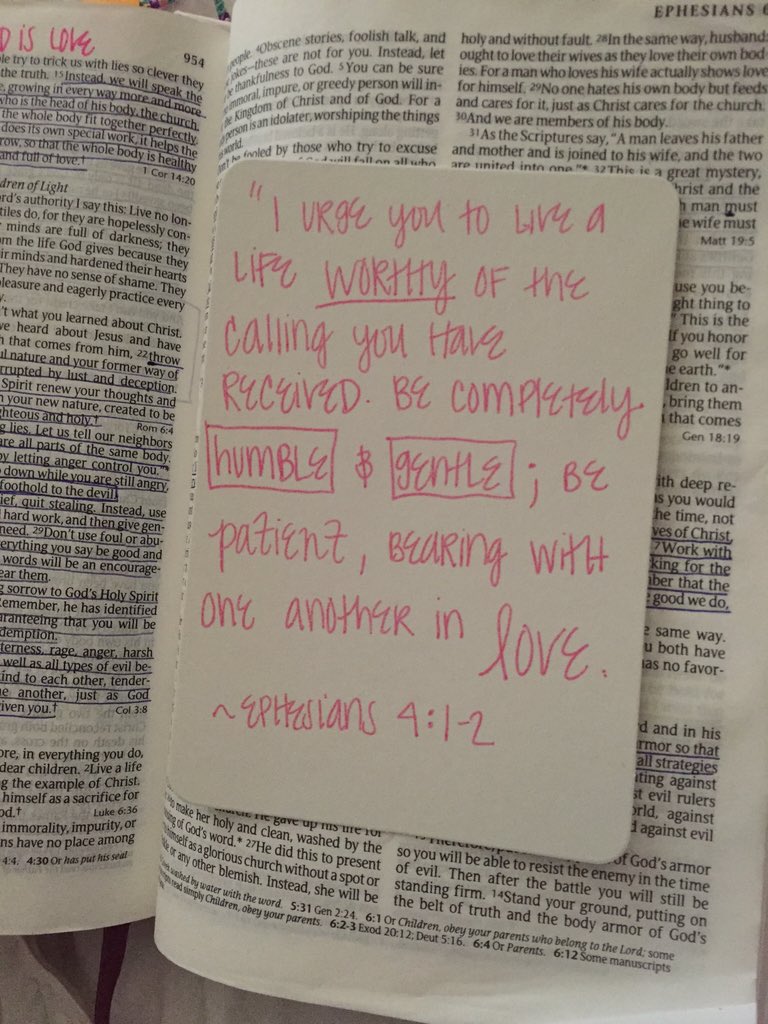 D IS LOVE
954
le try to trick us with lies so clever they
the truth. 15Instead, we will speak the
, growing in every way more and more
who is the head of his body, the church.
the whole body fit together perfectly.
does its own special work, it helps the
row, so that the whole body is healthy
and full of love.†
1 Cor 14:20
dren of Light
rd's authority I say this: Live no lon-
tiles do, for they are hopelessly con-
minds are full of darkness; they
m the life God gives because they
ir minds and hardened their hearts
They have no sense of shame. They
leasure and eagerly practice every
y.
't what you learned about Christ.
ve heard about Jesus and have
h that comes from him, 22throw
ul nature and your former way of
rrupted by lust and deception.
Spirit renew your thoughts and
n your new nature, created to be
ghteous and holy.†
Rom 6:4
g lies. Let us tell our neighbors
are all parts of the same body.
by letting anger control you."*
down while you are still angry,
foothold to the devil.
ief, quit stealing. Instead, use
hard work, and then give gen-
need. 29Don't use foul or abu-
erything you say be good and
words will be an encourage-
ear them.
g sorrow to God's Holy Spirit
Remember, he has identified
aranteeing that you will be
demption.
terness, rage, anger, harsh
well as all types of evil be-
ind to each other, tender-
e another, just as God
iven you.†
Col 3:8
ore, in everything you do,
dear children. 2Live a life
g the example of Christ.
himself as a sacrifice for
od.†
Luke 6:36
immorality, impurity, or
ns have no place among
4:4. 4:30 Or has put his seal
people. 4Obscene stories, foolish talk, and
jokes—these are not for you. Instead, let
be thankfulness to God. 5You can be sure
immoral, impure, or greedy person will in-
the Kingdom of Christ and of God. For a
person is an idolater, worshiping the things
world.
't be fooled by those who try to excuse
God will fall on all who
"I URGE YOU TO LIVE A
LIFE WORTHY OF THE
CALLING YOU HAVE
RECEIVED. BE COMPLETELY
HUMBLE & GENTLE; BE
PATIENT, BEARING WITH
ONE ANOTHER IN LOVE.
~EPHESIANS 4:1-2
church. He gave up his life for
to make her holy and clean, washed by the
ing of God's word.* 27He did this to present
himself as a glorious church without a spot or
le or any other blemish. Instead, she will be
EPHESIANS 6
holy and without fault. 28In the same way, husband
ought to love their wives as they love their own bod-
ies. For a man who loves his wife actually shows love
for himself. 29No one hates his own body but feeds
and cares for it, just as Christ cares for the church.
30And we are members of his body.
31As the Scriptures say, "A man leaves his father
and mother and is joined to his wife, and the two
are united into one."* 32This is a great mystery,
hrist and the
h man must
e wife must
Matt 19:5
use you be-
ght thing to
" This is the
If you honor
go well for
e earth."*
ldren to an-
bring them
that comes
Gen 18:19
ith deep re-
s you would
he time, not
ves of Christ,
7Work with
king for the
ber that the
e good we do,
e same way.
u both have
as no favor-
d and in his
rmor so that
all strategies
ting against
st evil rulers
orld, against
d against evil
13Therefore, put
of God's armor
so you will be able to resist the enemy in the time
of evil. Then after the battle you will still be
standing firm. 14Stand your ground, putting on
the belt of truth and the body armor of God's
washed by water with the word. 5:31 Gen 2:24. 6:1 Or Children, obey your parents who belong to the Lord; some
read simply Children, obey your parents. 6:2-3 Exod 20:12; Deut 5:16. 6:4 Or Parents. 6:12 Some manuscripts